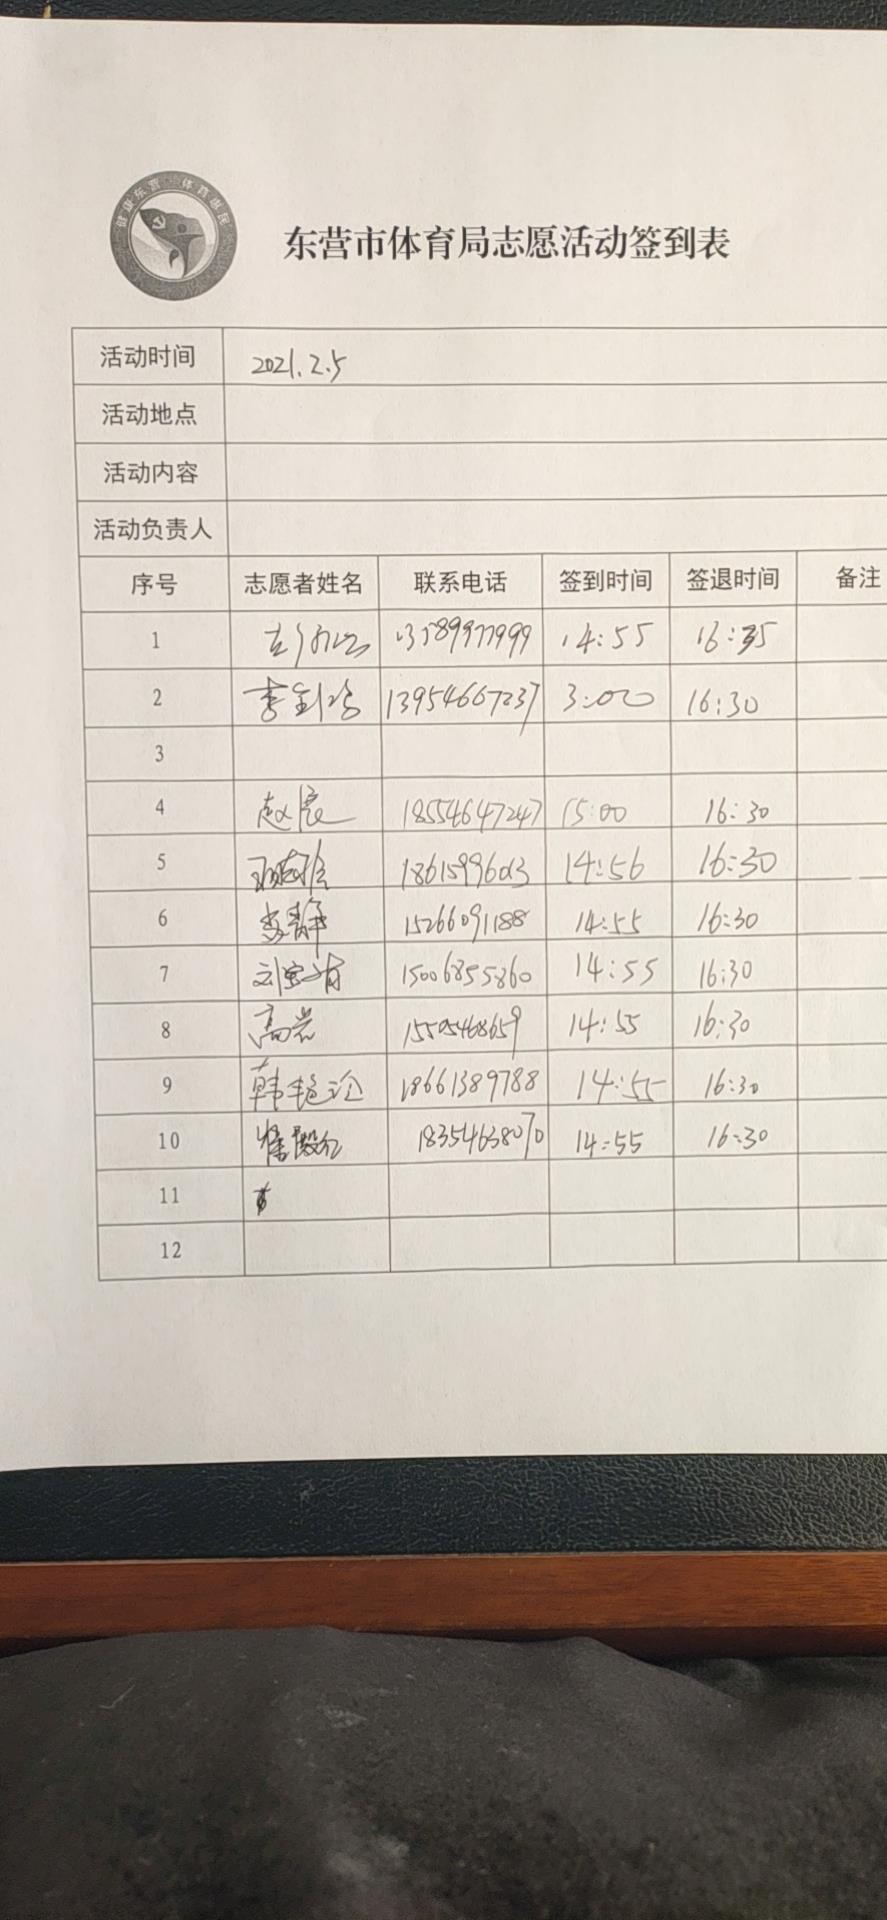 健康东营 体育惠民
东营市体育局志愿活动签到表
活动时间 2021.2.5
活动地点
活动内容
活动负责人
序号 志愿者姓名 联系电话 签到时间 签退时间 备注
1 13589977999 14:55 16:35
2 李剑 13954667237 3:00 16:30
3
4 赵晨 18554647247 15:00 16:30
5 14:56 16:30
6 李静 15266091188 14:55 16:30
7 刘宝 15006855860 14:55 16:30
8 高岩 15505468659 14:55 16:30
9 韩艳 18661389788 14:55 16:30
10 18354638070 14:55 16:30
11
12